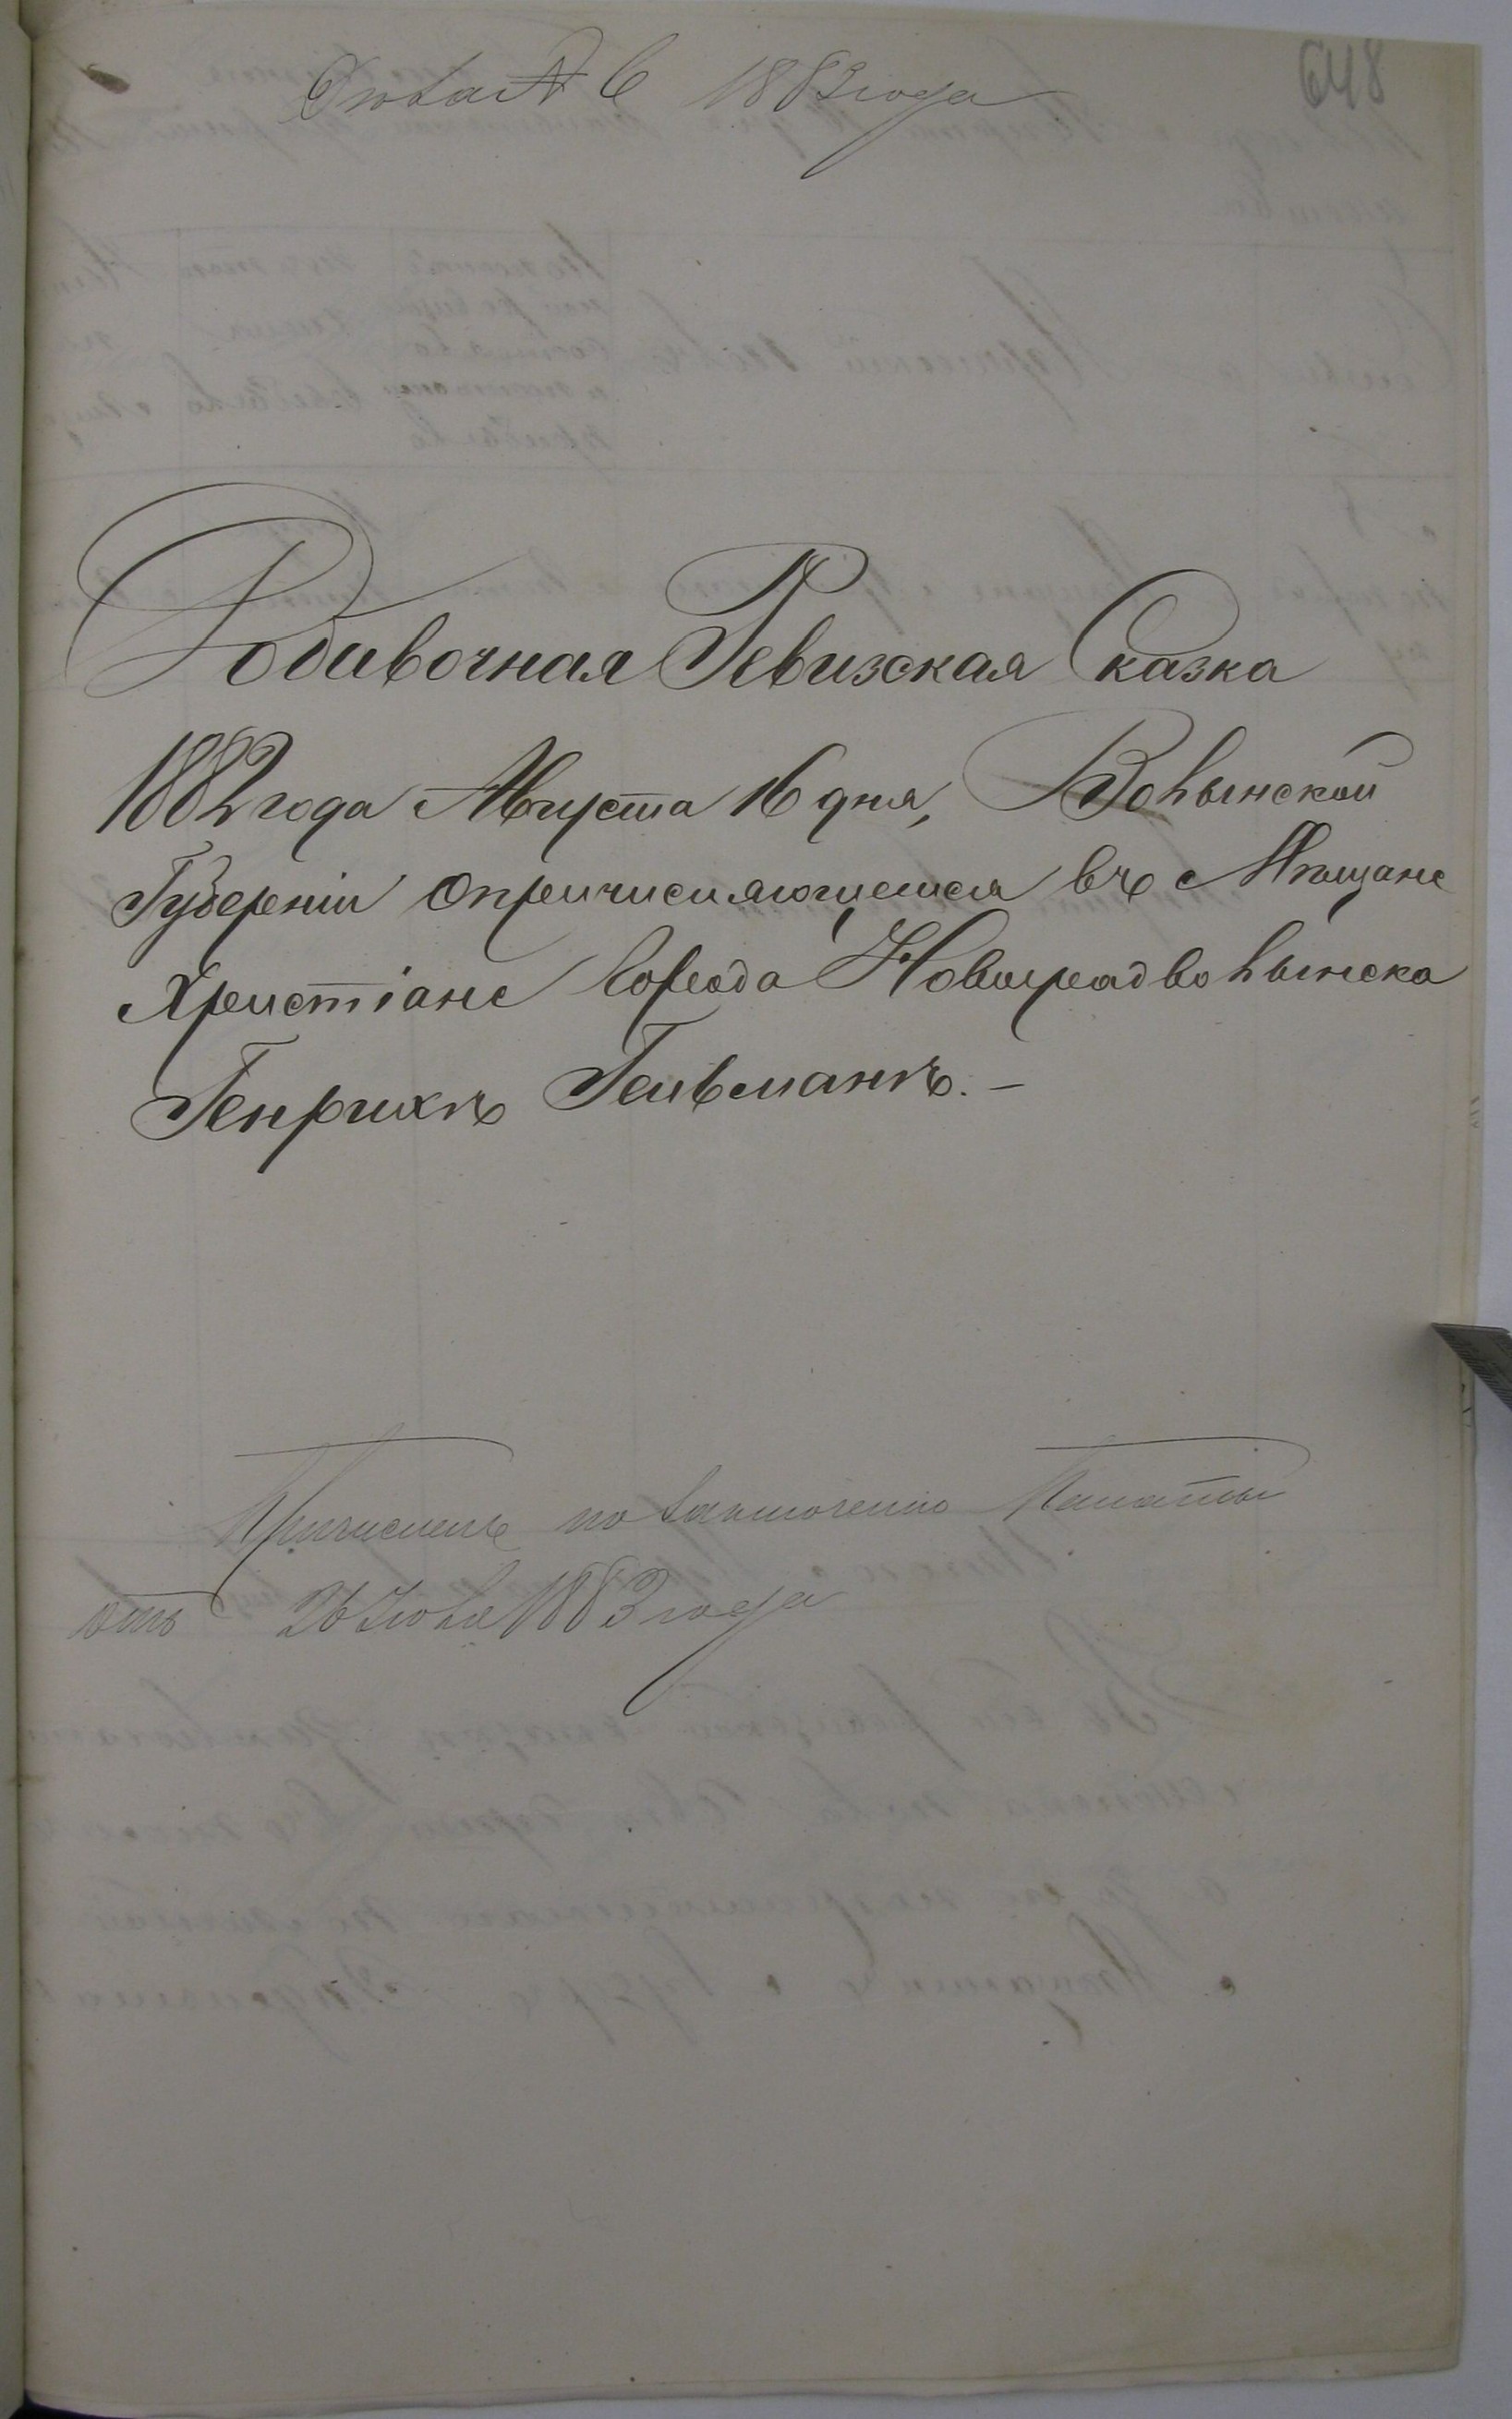 648
№ 6 1883 года
Добавочная Ревизская Сказка
1882 года Августа 16 дня, Волынской
Губерніи о причисляющемся въ Мѣщане
Христіане Города Новоградволынска
Генрихъ Гельманъ. —
Причисленъ по заключенію Палаты
отъ 26 Іюля 1883 года